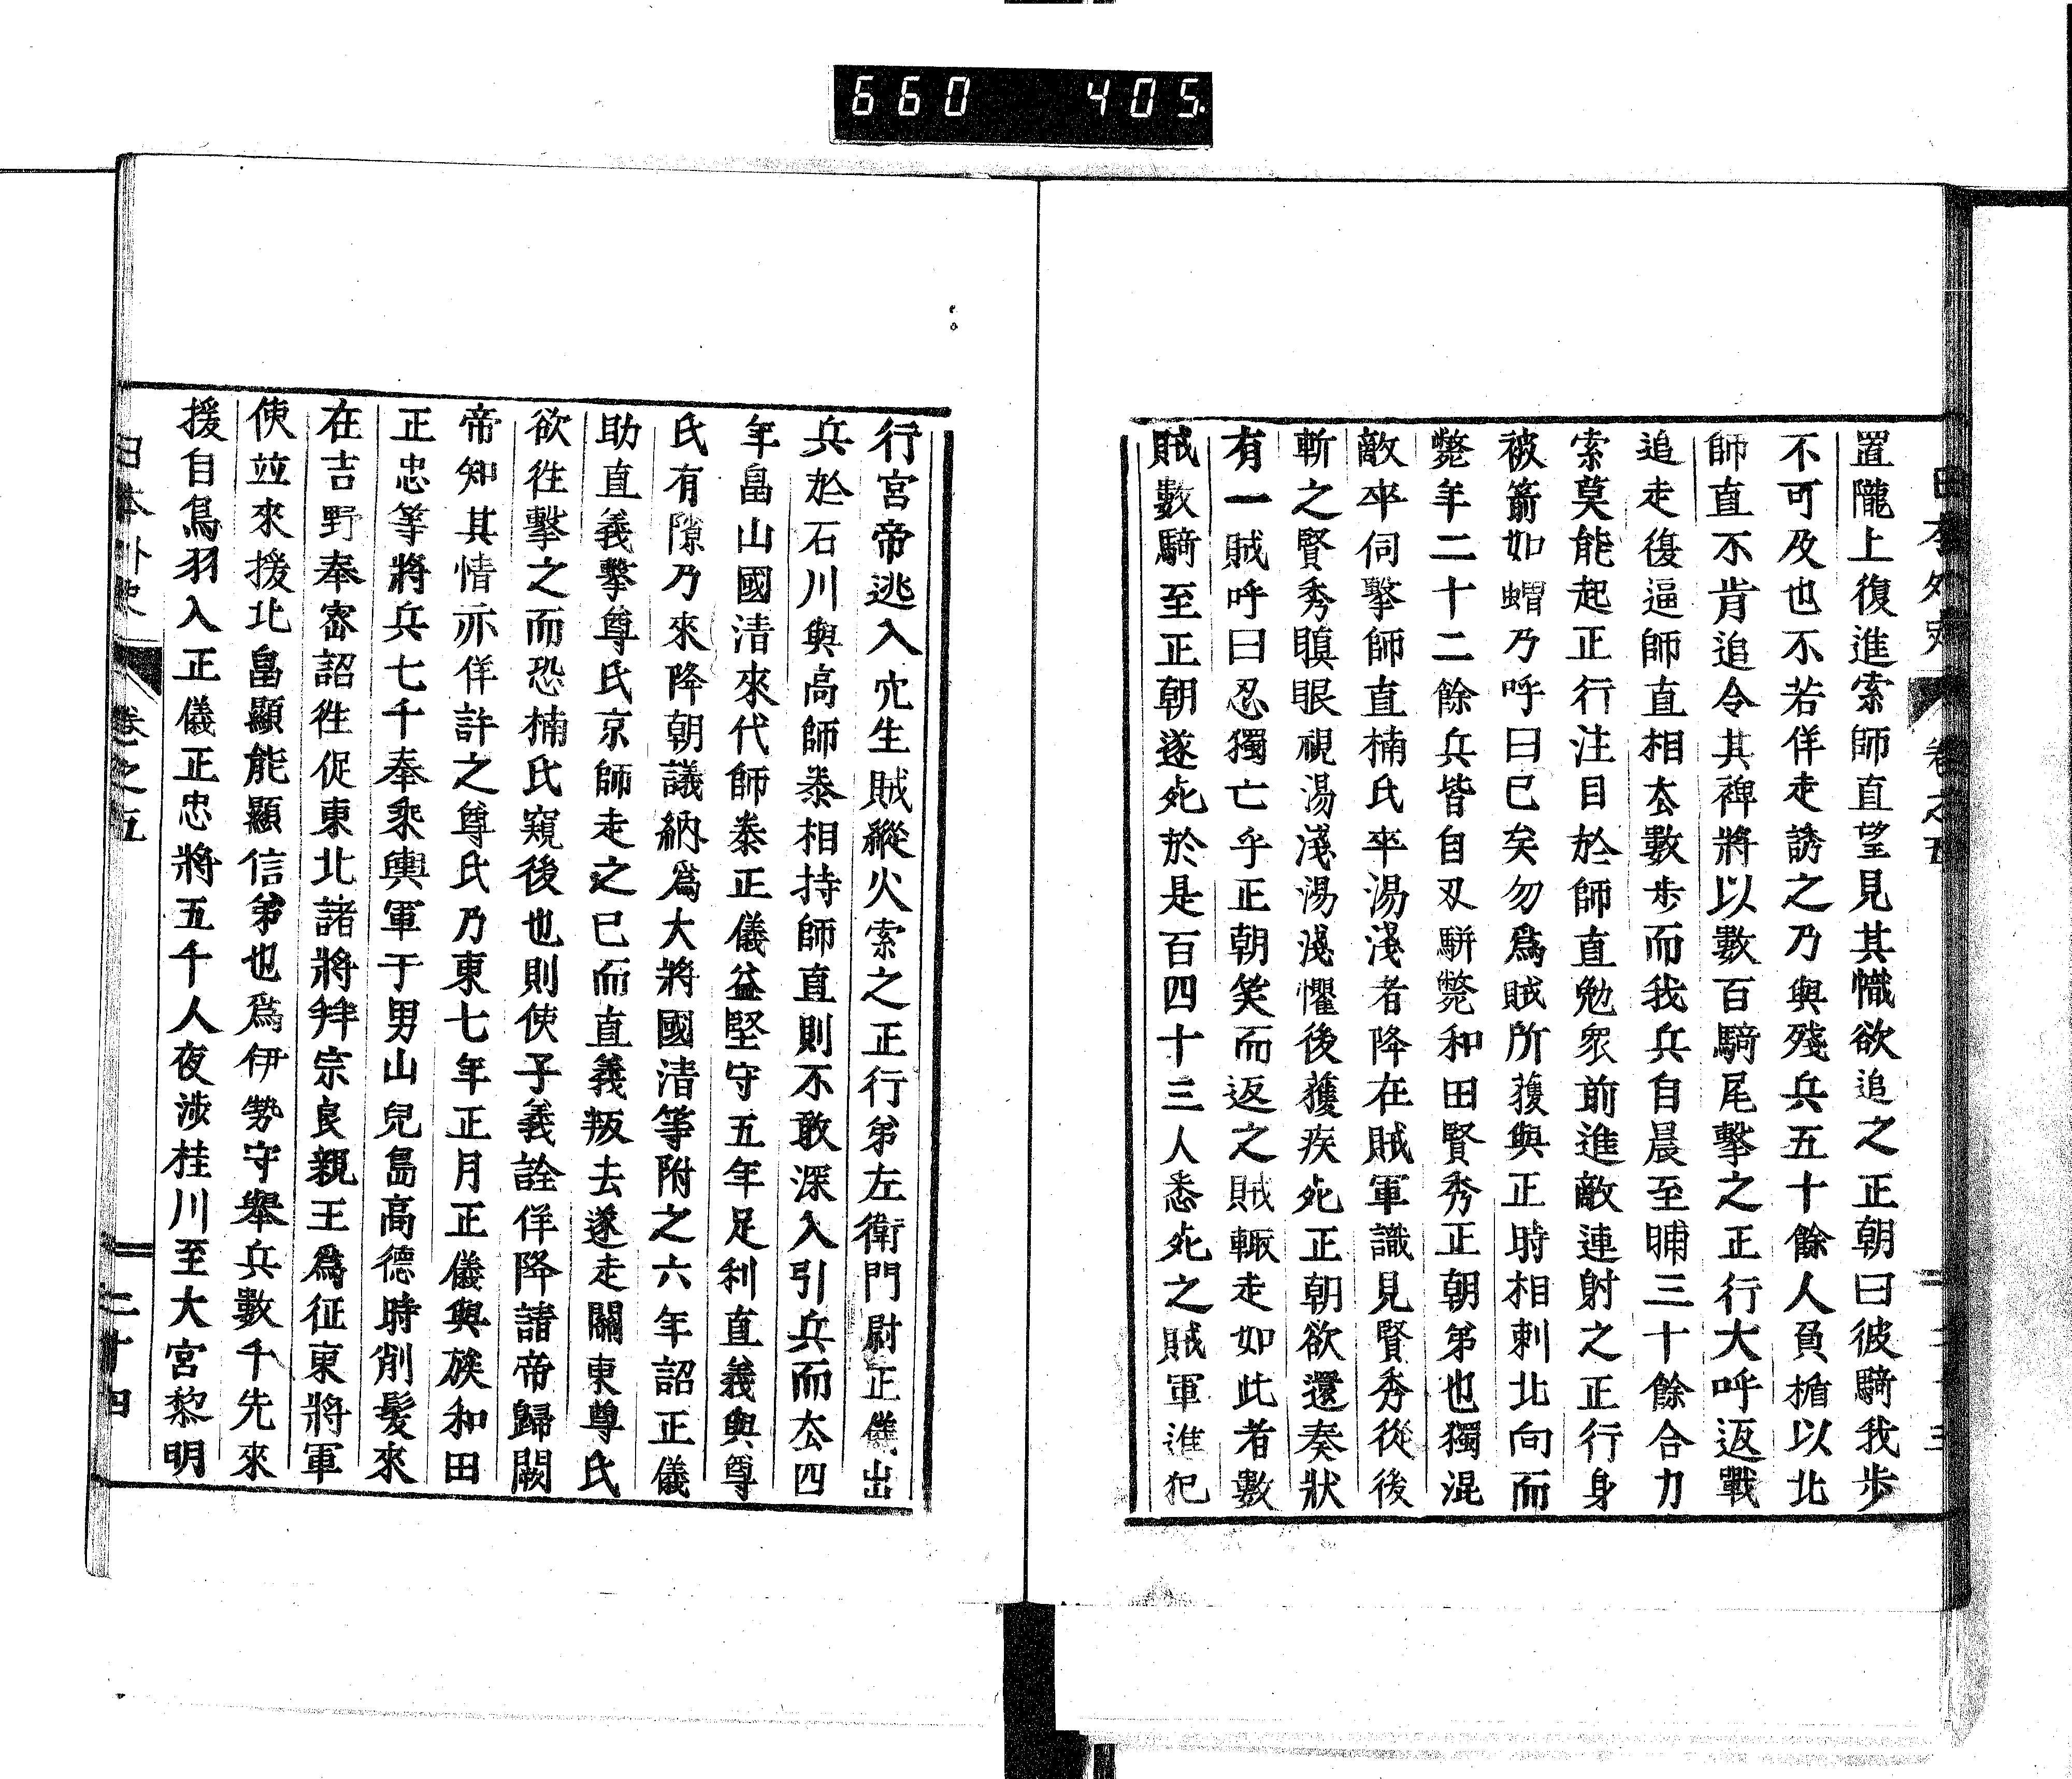 660 405
日本外史 卷之五
置隴上復進索師直望見其幟欲追之正朝曰彼騎我步
不可及也不若佯走誘之乃與殘兵五十餘人負楯以北
師直不肯追令其裨將以數百騎尾擊之正行大呼返戰
追走復逼師直相厺數步而我兵自晨至晡三十餘合力
索莫能起正行注目於師直勉衆前進敵連射之正行身
被箭如蝟乃呼曰已矣勿爲賊所獲與正時相刺北向而
斃年二十二餘兵皆自刃駢斃和田賢秀正朝弟也獨混
敵卒伺擊師直楠氏卒湯淺者降在賊軍識見賢秀從後
斬之賢秀瞋眼視湯淺湯淺懼後獲疾死正朝欲還奏狀
有一賊呼曰忍獨亡乎正朝笑而返之賊輙走如此者數
賊數騎至正朝遂死於是百四十三人悉死之賊軍進犯
行宮帝逃入穴生賊縱火索之正行弟左衛門尉正儀出
兵於石川與高師泰相持師直則不敢深入引兵而厺四
年畠山國清來代師泰正儀益堅守五年足利直義與尊
氏有隙乃來降朝議納爲大將國清等附之六年詔正儀
助直義擊尊氏京師走之已而直義叛去遂走關東尊氏
欲徃擊之而恐楠氏窺後也則使子義詮佯降請帝歸闕
帝知其情亦佯許之尊氏乃東七年正月正儀與族和田
正忠等將兵七千奉乘輿軍于男山兒島高德時削髮來
在吉野奉密詔徃促東北諸將拜宗良親王爲征東將軍
使竝來援北畠顯能顯信弟也爲伊勢守舉兵數千先來
援自鳥羽入正儀正忠將五千人夜涉桂川至大宮黎明
日本外史 卷之五 二十四